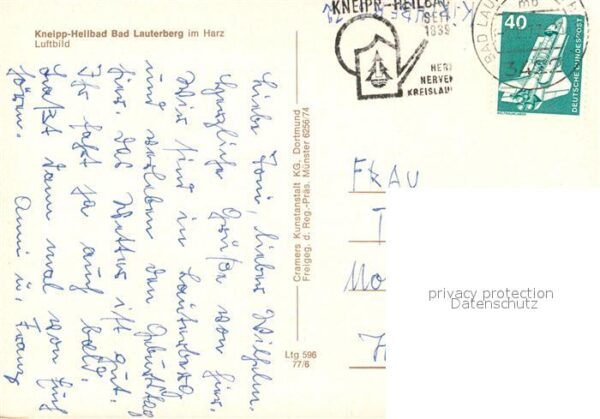 Kneipp-Heilbad Bad Lauterberg im Harz
Luftbild
Liebe Toni, lieber Wilhelm.
Herzliche Grüße von hier.
Wir sind in Lauterberg
und verleben den Geburtstag
hier. Das Wetter ist gut.
Ihr habt ja auch bald.
Laßt dann mal von Euch
hören.
Anni u. Franz
Cramers Kunstanstalt KG, Dortmund
Freigeg. d. Reg.-Präs. Münster 6256/74
Ltg 596
77/6
KNEIPP-HEILBAD
SEIT
1839
HERZ
NERVEN
KREISLAUF
BAD LAU
mb
40
DEUTSCHE BUNDESPOST
FRAU
T
Mo
H
privacy protection
Datenschutz